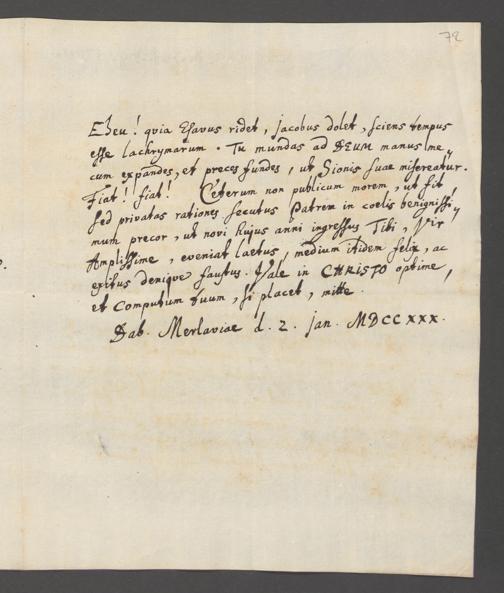 72
Eheu! quia Esavus ridet, Jacobus dolet, sciens tempus
esse lachrymarum. Tu mundas ad DEUM manus me,,
cum expandes, et preces fundes, ut Sionis suae misereatur.
Fiat! fiat! Ceterum non publicum morem, ut fit,
sed privatas rationes secutus Patrem in coelis benignissi,,
mum precor, ut novi hujus anni ingressus Tibi, Vir
Amplissime, eveniat laetus, medium itidem felix, ac
exitus denique faustus. Vale in CHRISTO optime,
et Computum tuum, si placet, mitte.
Dab. Merlaviae d. 2. Jan. MDCCXXX.